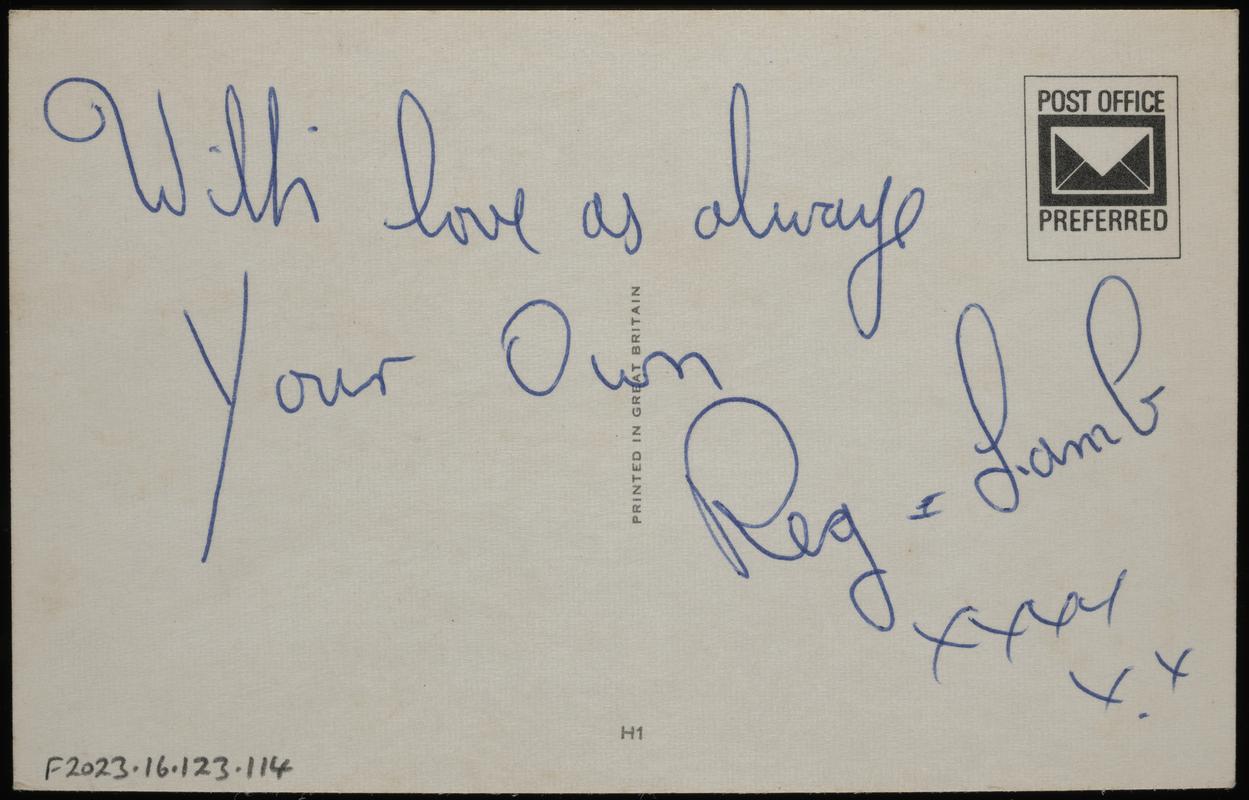 With love as always
POST OFFICE
PREFERRED
Your Own
PRINTED IN GREAT BRITAIN
Reg = Lamb
xxxx
x.x
H1
F2023.16.123.114